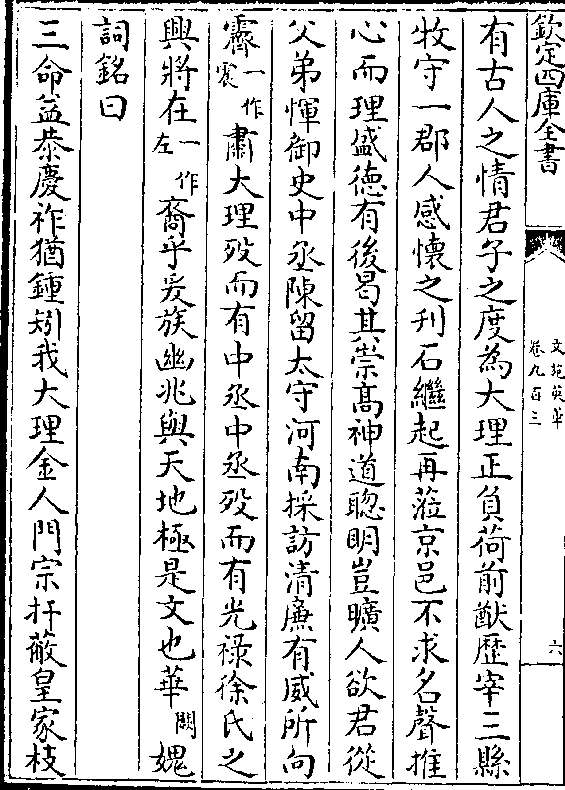 欽定四庫全書
文苑英華
卷九百三
六
有古人之情君子之度為大理正負荷前猷歷宰三縣
牧守一郡人感懷之刋石繼起再蒞京邑不求名聲推
心而理盛德有後曷其崇髙神道聰明豈曠人欲君從
父弟惲御史中丞陳留太守河南採訪清廉有威所向
霽一作震肅大理歿而有中丞中丞歿而有光祿徐氏之
興將在一作左裔乎爰族幽兆與天地極是文也華闕媿
詞銘曰
三命益恭慶祚猶鍾矧我大理金人門宗扞蔽皇家枝